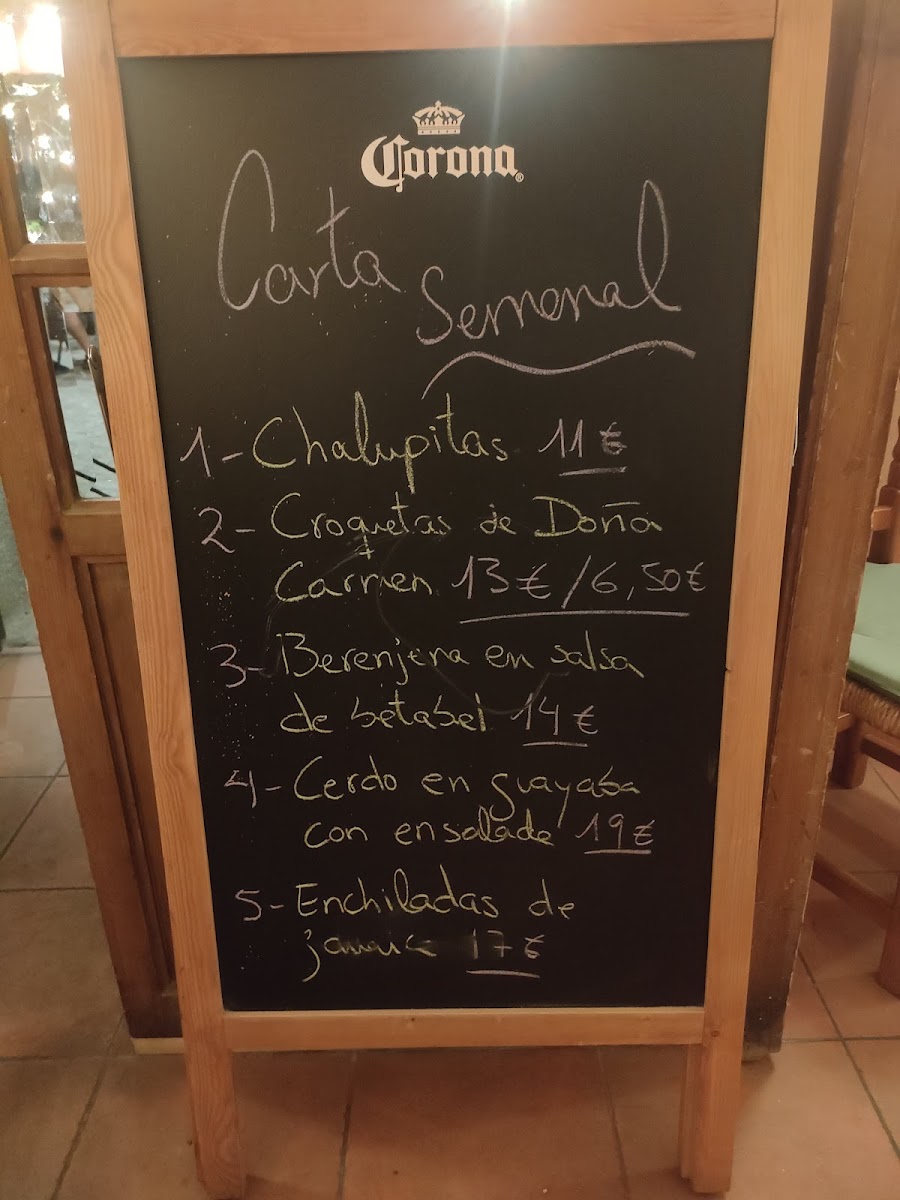 Corona
Carta
Semanal
1- Chalupitas 11€
2- Croquetas de Doña
Carmen 13€/6,50€
3- Berenjena en salsa
de betabel 14€
4- Cerdo en guayaba
con ensalada 19€
5- Enchiladas de
17€